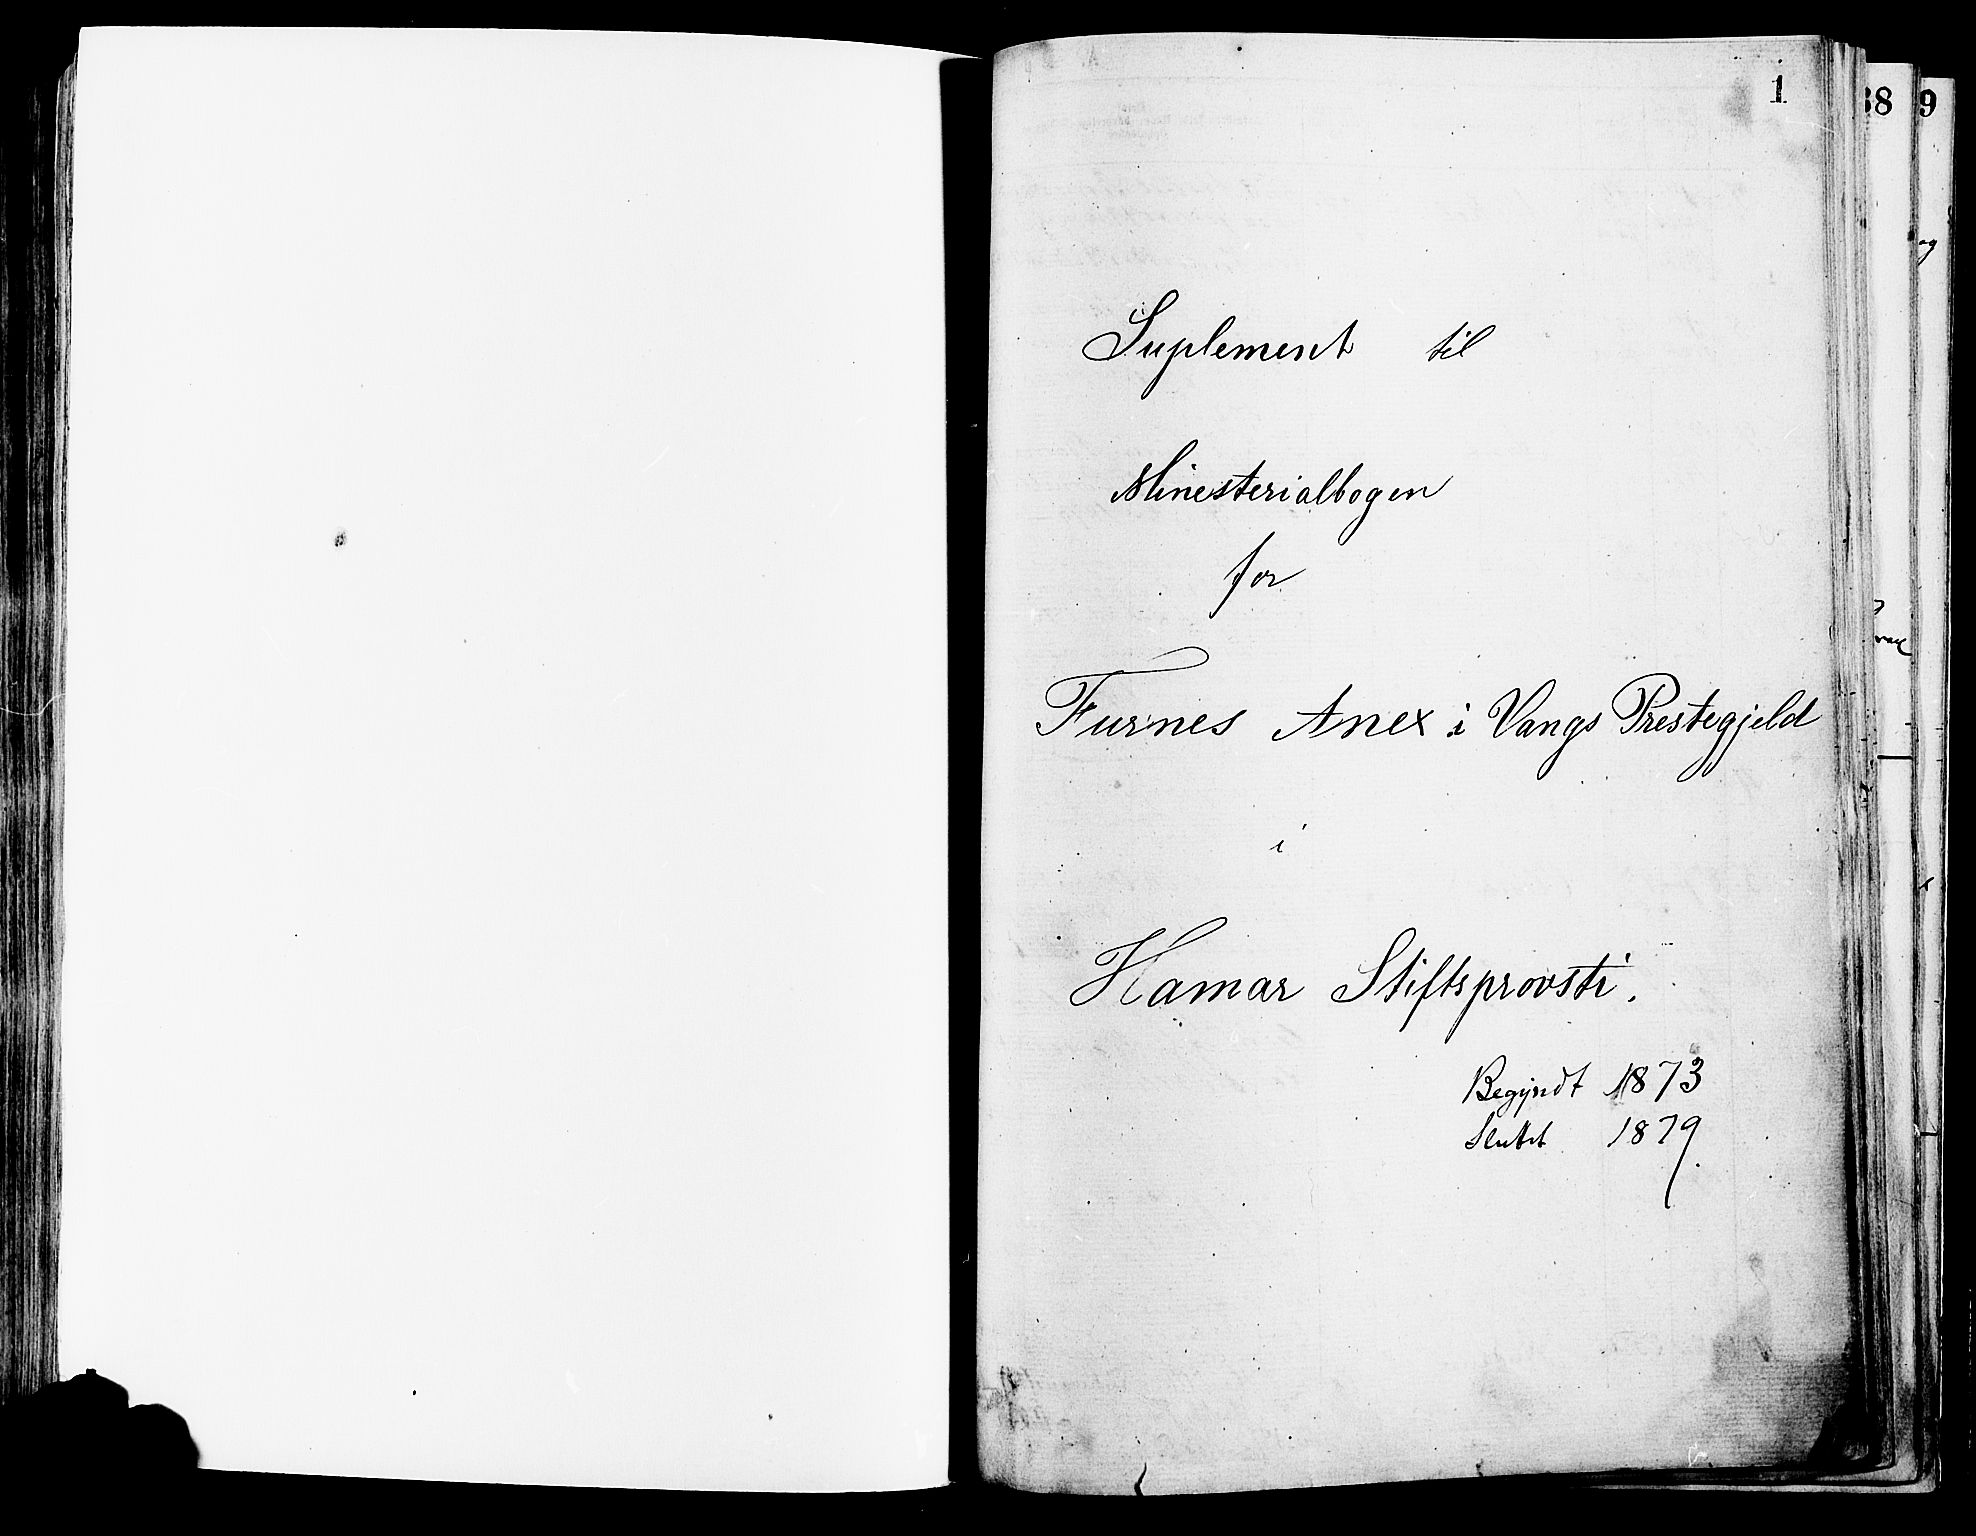 1
38
9
og
Suplement til
Minesterialbogen
for
Furnes Anex i Vangs Prestegjeld
i
Hamar Stiftsprovsti.
Begyndt 1873
Sluttet 1879